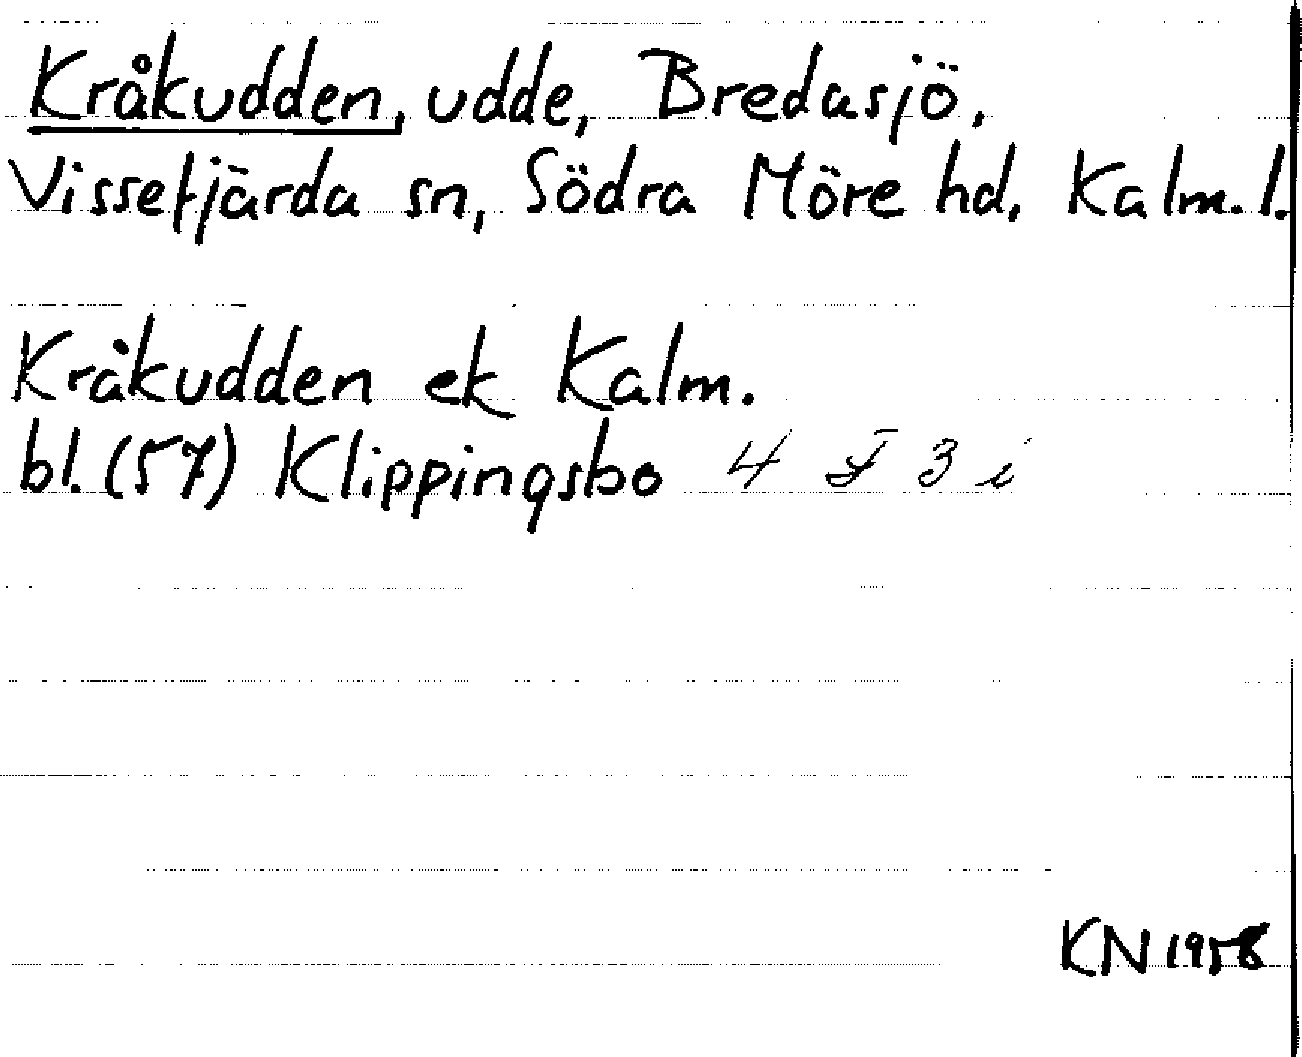 Kråkudden, udde, Bredasjö,
Vissefjärda sn, Södra Möre hd, Kalm. l.
Kråkudden ek Kalm.
bl. (57) Klippingsbo 4 F 3 i
KN 1958